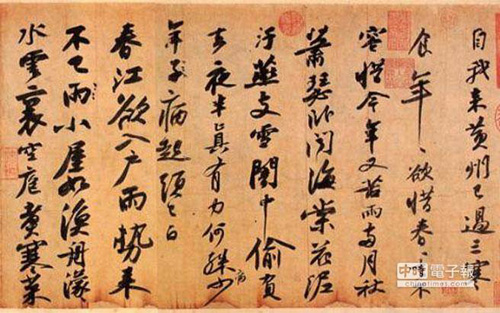 自我來黄州已過三寒
食年〻欲惜春〻去不
容惜今年又苦雨兩月秋
蕭瑟卧聞海棠花泥
汙燕支雪闇中偷負
去夜半真有力何殊病少
年子病起頭已白
春江欲入户雨勢來
不已雨小屋如漁舟濛〻
水雲裏空庖煮寒菜
中時電子報
chinatimes.com